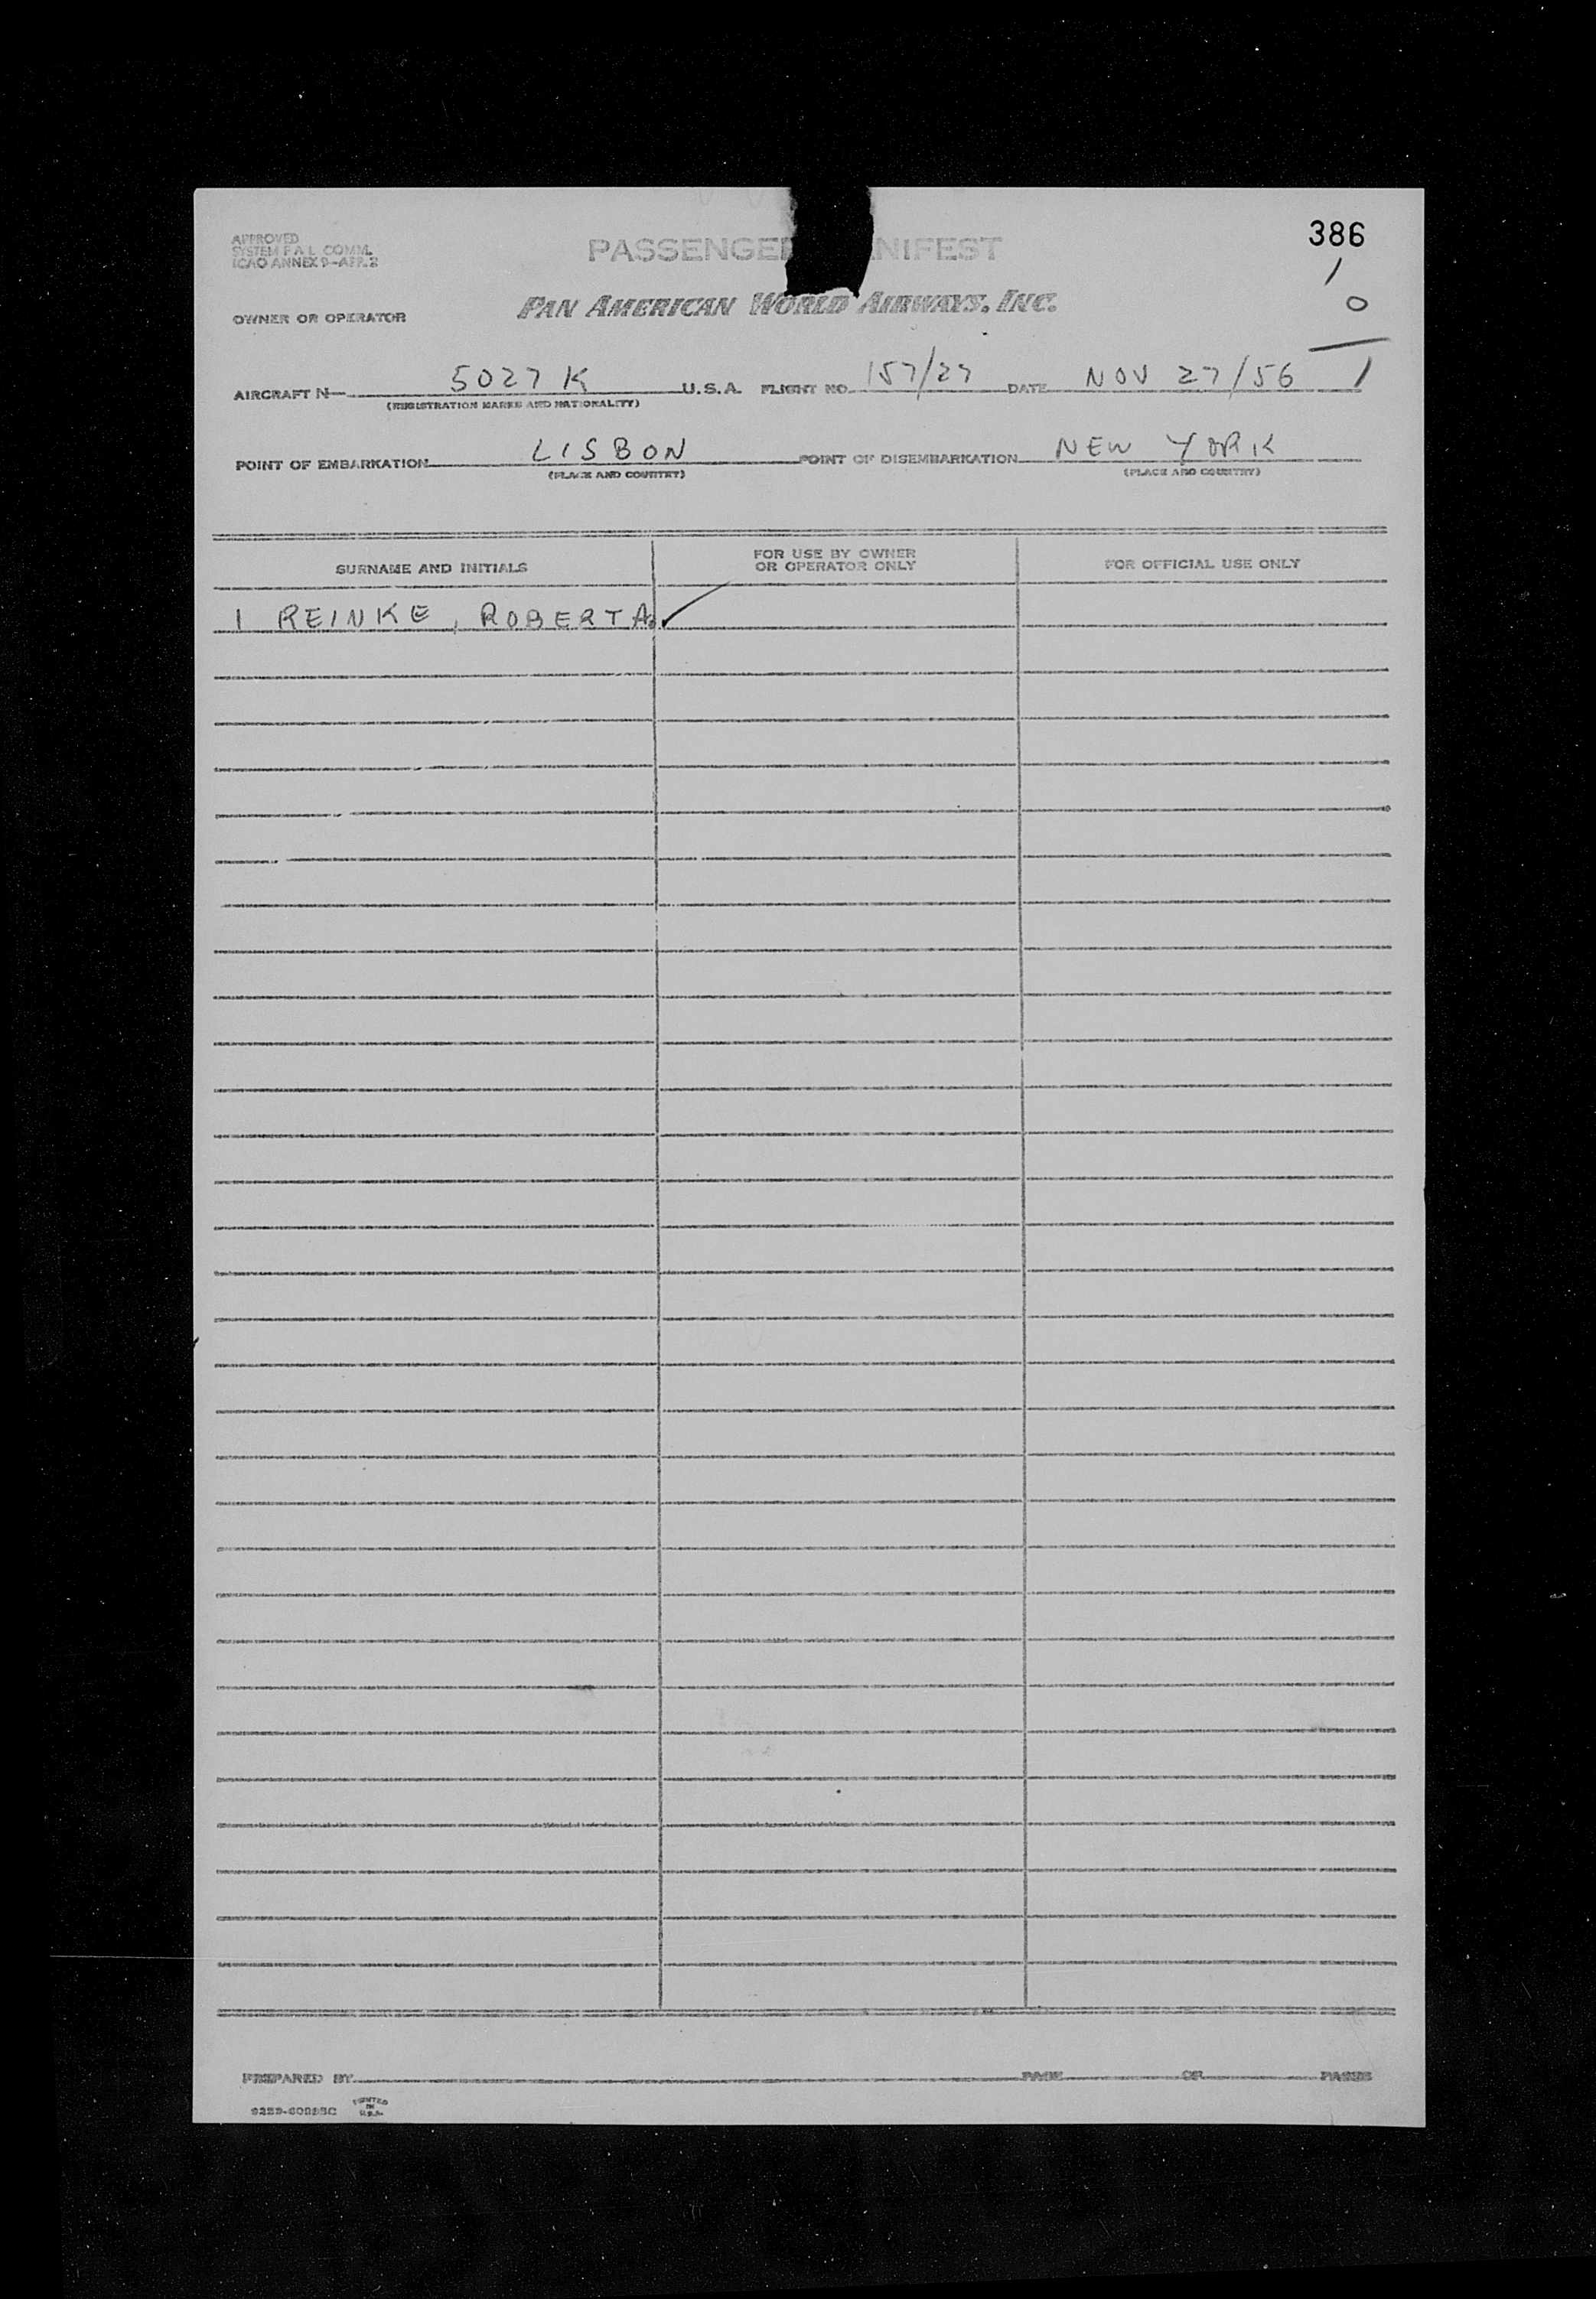 APPROVED
SYSTEM P A L COMM.
ICAO ANNEX 9-APP. 2
PASSENGER MANIFEST
386
1
0
1
OWNER OR OPERATOR
PAN AMERICAN WORLD AIRWAYS, INC.
AIRCRAFT N 5027 K U.S.A. FLIGHT NO. 157/27 DATE NOV 27/56
(REGISTRATION MARKS AND NATIONALITY)
POINT OF EMBARKATION LISBON POINT OF DISEMBARKATION NEW YORK
(PLACE AND COUNTRY) (PLACE AND COUNTRY)
SURNAME AND INITIALS
FOR USE BY OWNER
OR OPERATOR ONLY
FOR OFFICIAL USE ONLY
1 REINKE, ROBERTA
PREPARED BY PAGE OF PAGES
PRINTED
IN
U.S.A.